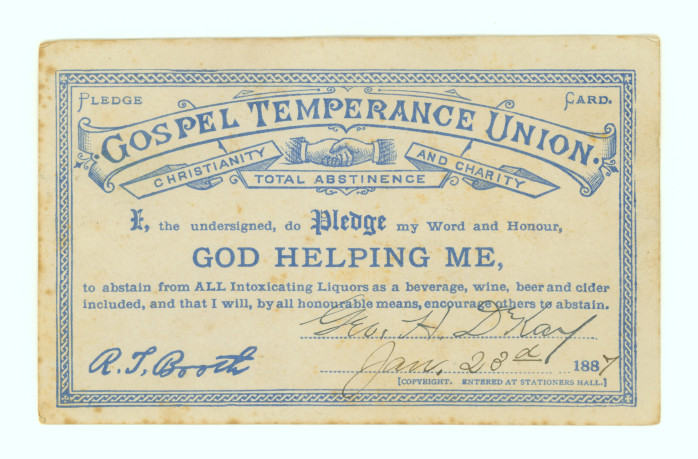 PLEDGE CARD.
GOSPEL TEMPERANCE UNION.
CHRISTIANITY AND CHARITY
TOTAL ABSTINENCE
I, the undersigned, do Pledge my Word and Honour,
GOD HELPING ME,
to abstain from ALL Intoxicating Liquors as a beverage, wine, beer and cider
included, and that I will, by all honourable means, encourage others to abstain.
Geo. H. D'Kay
R. T. Booth Jan. 23d 1887
[COPYRIGHT. ENTERED AT STATIONERS HALL.]